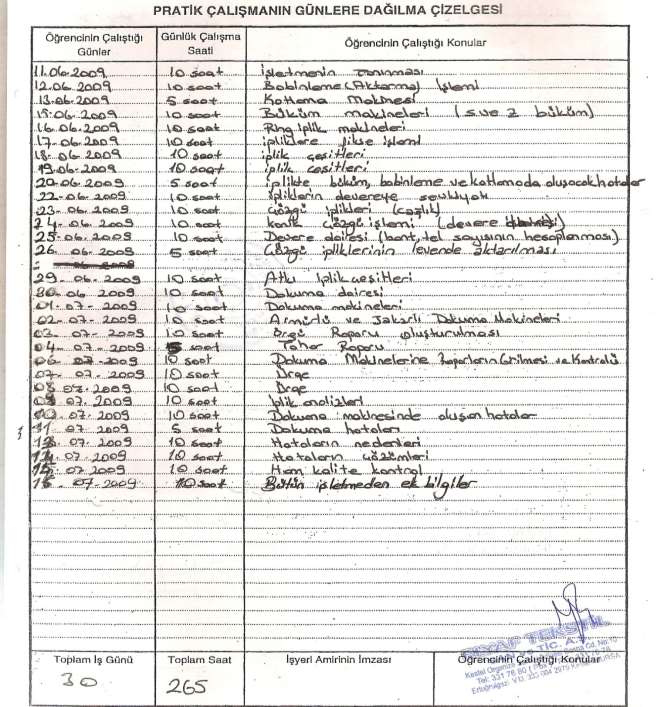 PRATİK ÇALIŞMANIN GÜNLERE DAĞILMA ÇİZELGESİ
Öğrencinin Çalıştığı Günler | Günlük Çalışma Saati | Öğrencinin Çalıştığı Konular
11.06.2009 10 saat işletmenin tanınması
12.06.2009 10 saat Bobinleme (Aktarma) işlemi
13.06.2009 5 saat Katlama Makinesi
15.06.2009 10 saat Büküm makineleri (s ve z büküm)
16.06.2009 10 saat Ring iplik makineleri
17.06.2009 10 saat ipliklere fikse işlemi
18.06.2009 10 saat iplik çeşitleri
19.06.2009 10 saat iplik çeşitleri
20-06-2009 5 saat iplikte büküm, bobinleme ve katlamada oluşacak hatalar
22-06.2009 10 saat ipliklerin devereye sevkiyatı
23-06.2009 10 saat Çözgü iplikleri (cağlık)
24-06.2009 10 saat konik çözgü işlemi (devere
25-06.2009 10 saat Devere dairesi (bant, tel sayısının hesaplanması)
26.06-2009 5 saat Çözgü ipliklerinin levende aktarılması
29-06.2009 10 saat Atkı iplik çeşitleri
30.06.2009 10 saat Dokuma dairesi
01-07-2009 10 saat Dokuma makineleri
02-07-2009 10 saat Armürlü ve Jakarlı Dokuma Makineleri
03.07-2009 10 saat Örgü Raporu oluşturulması
04.07-2009 5 saat Tahar Raporu
06.07-2009 10 saat Dokuma Makinelerine Raporların Girilmesi ve Kontrolü
07-07-2009 10 saat Ürge
08.07.2009 10 saat Ürge
09.07.2009 10 saat İplik analizleri
10.07.2009 10 saat Dokuma makinesinde oluşan hatalar
11.07-2009 5 saat Dokuma hataları
13.07-2009 10 saat Hataların nedenleri
14.07.2009 10 saat Hataların çözümleri
15.07-2009 10 saat Ham kalite kontrol
.07-2009 10 saat Bütün işletmeden ek bilgiler
Toplam İş Günü | Toplam Saat | İşyeri Amirinin İmzası | Öğrencinin Çalıştığı Konular
30 265